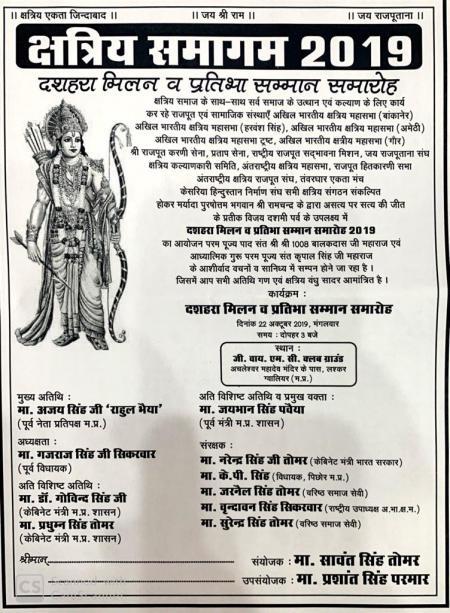 ।। क्षत्रिय एकता जिन्दाबाद ।। ।। जय श्री राम ।। ।। जय राजपूताना ।।
क्षत्रिय समागम 2019
दशहरा मिलन व प्रतिभा सम्मान समारोह
क्षत्रिय समाज के साथ-साथ सर्व समाज के उत्थान एवं कल्याण के लिए कार्य
कर रहे राजपूत एवं सामाजिक संस्थाएँ अखिल भारतीय क्षत्रिय महासभा (बांकानेर)
अखिल भारतीय क्षत्रिय महासभा (हरवंश सिंह), अखिल भारतीय क्षत्रिय महासभा (अमेठी)
अखिल भारतीय क्षत्रिय महासभा ट्रष्ट, अखिल भारतीय क्षत्रिय महासभा (गौर)
श्री राजपूत करणी सेना, प्रताप सेना, राष्ट्रीय राजपूत सद्भावना मिशन, जय राजपूताना संघ
क्षत्रिय कल्याणकारी समिति, अंतराष्ट्रीय क्षत्रिय महासभा, राजपूत हितकारणी सभा
अंतराष्ट्रीय क्षत्रिय राजपूत संघ, तंवरघार एकता मंच
केसरिया हिन्दुस्तान निर्माण संघ सभी क्षत्रिय संगठन संकल्पित
होकर मर्यादा पुरषोत्तम भगवान श्री रामचन्द्र के द्वारा असत्य पर सत्य की जीत
के प्रतीक विजय दशमी पर्व के उपलक्ष्य में
दशहरा मिलन व प्रतिभा सम्मान समारोह 2019
का आयोजन परम पूज्य पाद संत श्री श्री 1008 बालकदास जी महाराज एवं
आध्यात्मिक गुरू परम पूज्य संत कृपाल सिंह जी महाराज
के आशीर्वाद वचनों व सानिध्य में सम्पन होने जा रहा है ।
जिसमें आप सभी अतिथि गण एवं क्षत्रिय वंधु सादर आमांत्रित है ।
कार्यक्रम :
दशहरा मिलन व प्रतिभा सम्मान समारोह
दिनांक 22 अक्टूबर 2019, मंगलवार
समय : दोपहर 3 बजे
स्थान :
जी. वाय. एम. सी. क्लब ग्राउंड
अचलेश्वर महादेव मंदिर के पास, लश्कर
ग्वालियर (म.प्र.)
मुख्य अतिथि :
मा. अजय सिंह जी 'राहुल भैया'
(पूर्व नेता प्रतिपक्ष म.प्र.)
अध्यक्षता :
मा. गजराज सिंह जी सिकरवार
(पूर्व विधायक)
अति विशिष्ट अतिथि :
मा. डॉ. गोविन्द सिंह जी
(केबिनेट मंत्री म.प्र. शासन)
मा. प्रधुम्न सिंह तोमर
(केबिनेट मंत्री म.प्र. शासन)
अति विशिष्ट अतिथि व प्रमुख वक्ता :
मा. जयभान सिंह पवैया
(पूर्व मंत्री म.प्र. शासन)
संरक्षक :
मा. नरेन्द्र सिंह जी तोमर (केबिनेट मंत्री भारत सरकार)
मा. के.पी. सिंह (विधायक, पिछोर म.प्र.)
मा. जरनैल सिंह तोमर (वरिष्ठ समाज सेवी)
मा. वृन्दावन सिंह सिकरवार (राष्ट्रीय उपाध्यक्ष अ.भा.क्ष.म.)
मा. सुरेन्द्र सिंह तोमर (वरिष्ठ समाज सेवी)
श्रीमान्
संयोजक : मा. सावंत सिंह तोमर
उपसंयोजक : मा. प्रशांत सिंह परमार
CS